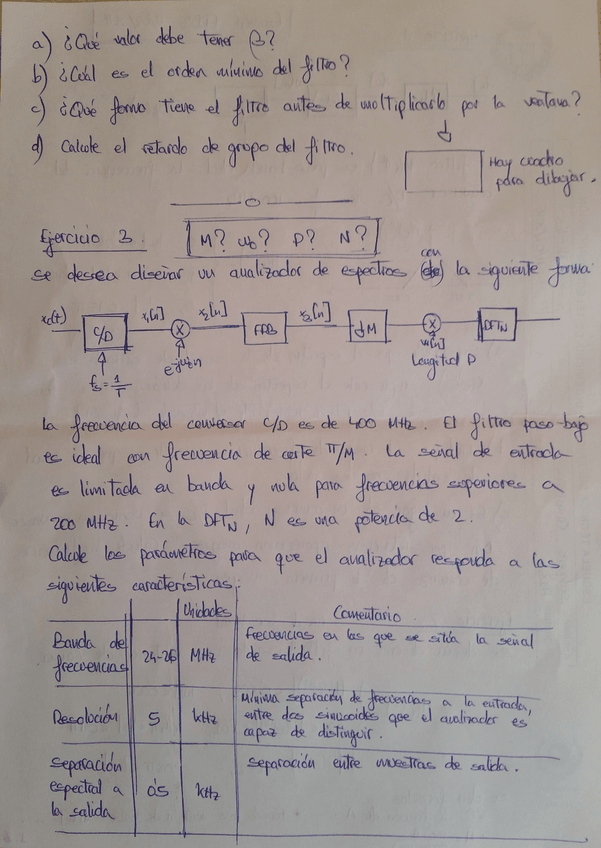 a) ¿Qué valor debe tener β?
b) ¿Cuál es el orden mínimo del filtro?
c) ¿Qué forma tiene el filtro antes de multiplicarlo por la ventana?
d) Calcule el retardo de grupo del filtro.
Hay cuadro
para dibujar.
Ejercicio 3.
M? ω₀? P? N?
se desea diseñar un analizador de espectros con (de) la siguiente forma:
xc(t)
C/D
x₁[n]
x
x₂[n]
FPB
x₃[n]
↓M
x
DFT_N
fs = 1/T
w[n]
Longitud P
La frecuencia del conversor C/D es de 400 MHz. El filtro paso-bajo
es ideal con frecuencia de corte π/M. La señal de entrada
es limitada en banda y nula para frecuencias superiores a
200 MHz. En la DFT_N, N es una potencia de 2.
Calcule los parámetros para que el analizador responda a las
siguientes características:
Unidades
Comentario
Banda de
frecuencias
24-26
MHz
Frecuencias en las que se sitúa la señal
de salida.
Resolución
5
kHz
Mínima separación de frecuencias a la entrada,
entre dos sinusoides que el analizador es
capaz de distinguir.
Separación
espectral a
la salida
0'5
kHz
separación entre muestras de salida.